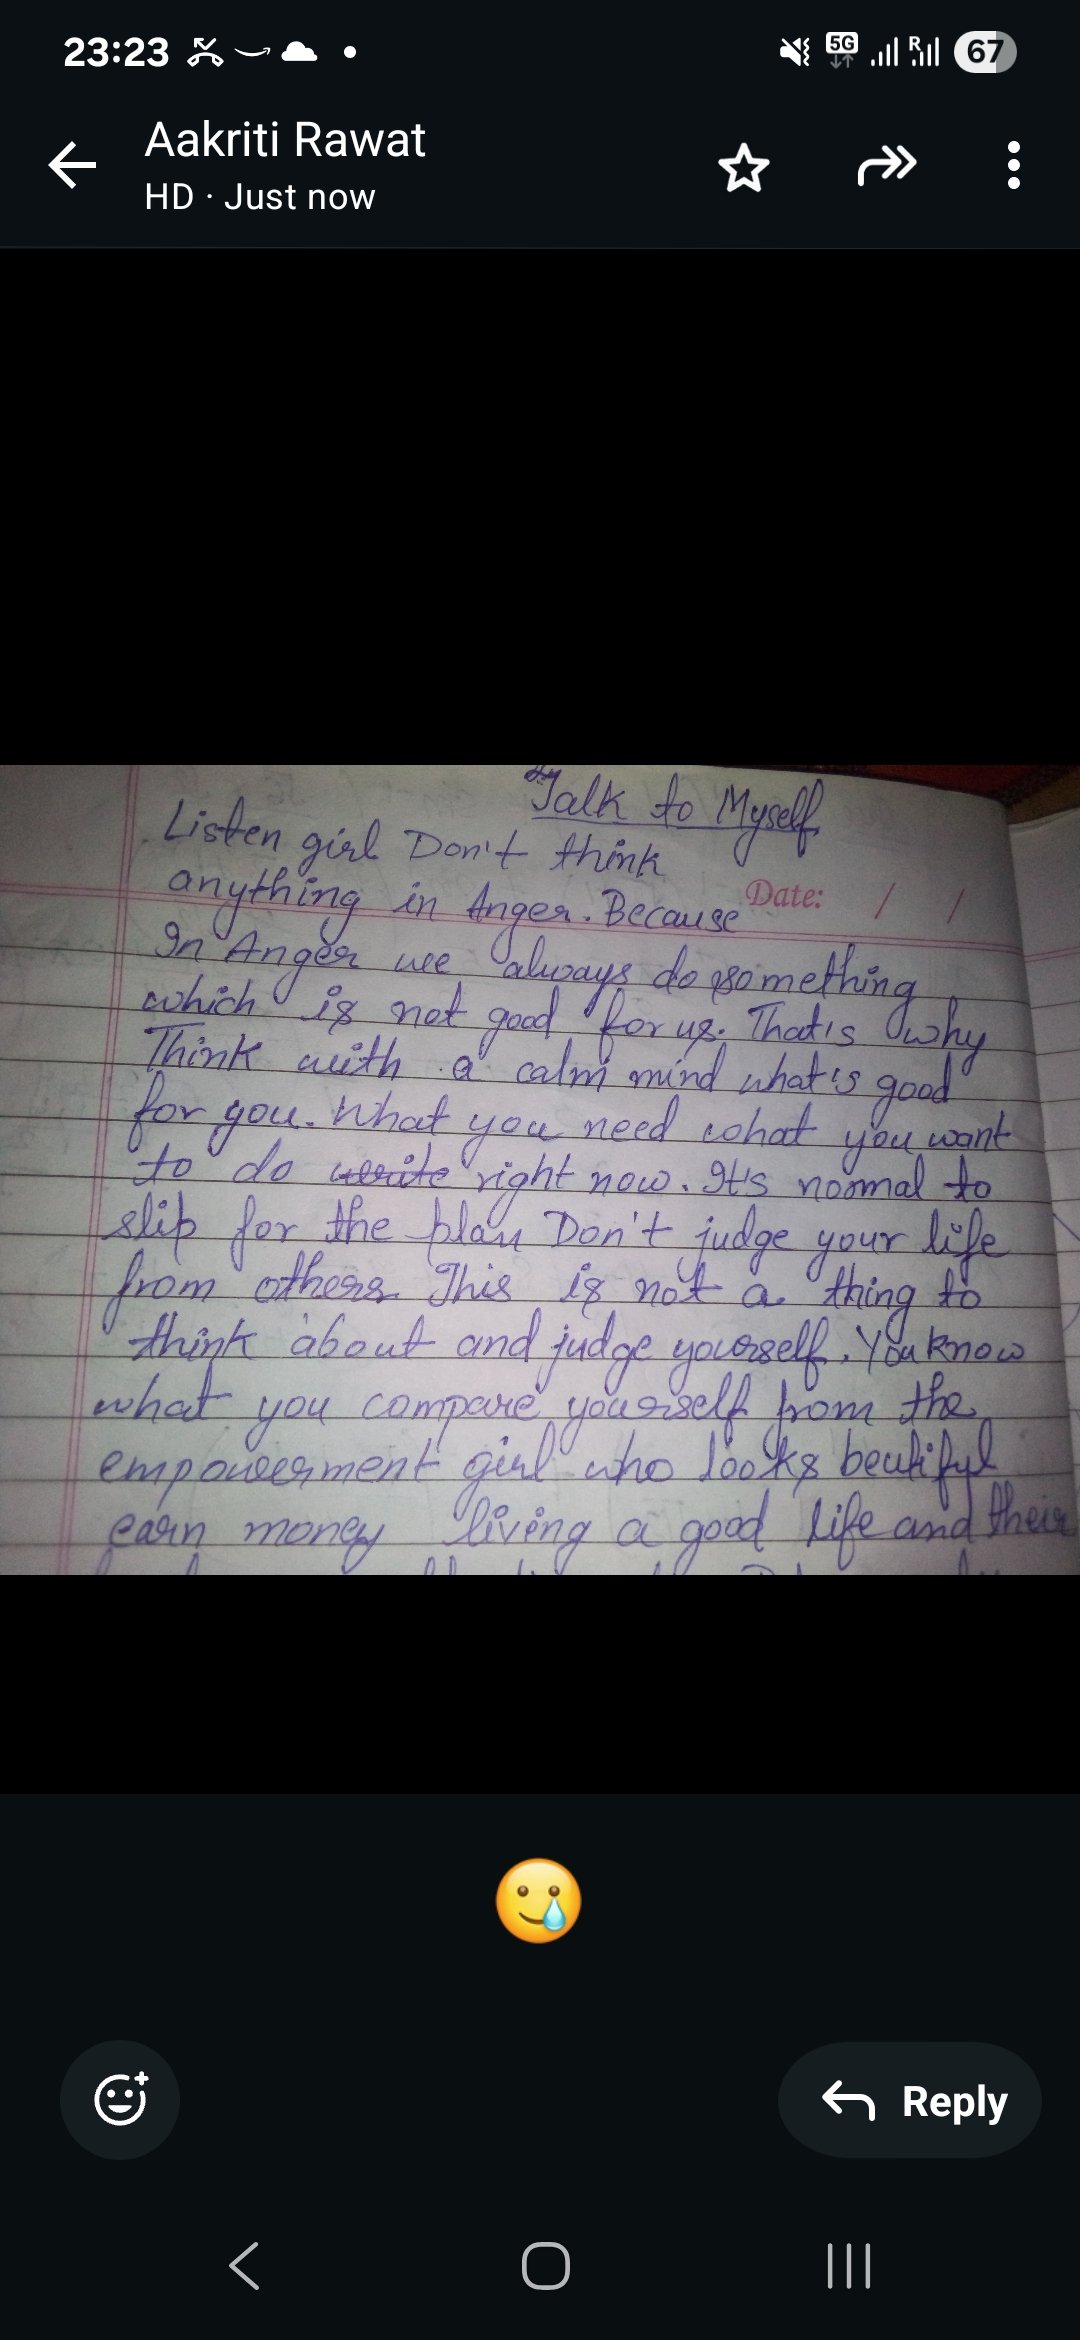 23:23
5G
R
67
Aakriti Rawat
HD · Just now
Talk to Myself
Listen girl Don't think
anything in Anger. Because
Date: / /
In Anger we always do something
which is not good for us. That's why
Think with a calm mind what's good
for you. What you need what you want
to do write right now. It's normal to
slip for the plan Don't judge your life
from others This is not a thing to
think about and judge yourself. You know
what you compare yourself from the
empowerment girl who looks beutiful
earn money living a good life and their
Reply